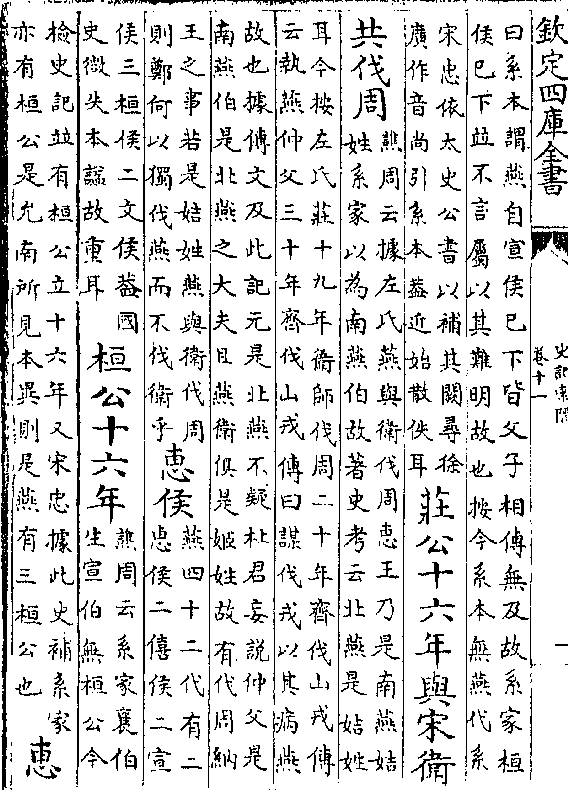 欽定四庫全書
史記索隱
卷十一
一
曰系本謂燕自宣侯已下皆父子相傳無及故系家桓
侯已下並不言屬以其難明故也按今系本無燕代系
宋忠依太史公書以補其闕尋徐
廣作音尚引系本蓋近始散佚耳
莊公十六年與宋衛
共伐周
譙周云據左氏燕與衛伐周惠王乃是南燕姞
姓系家以為南燕伯故著史考云北燕是姞姓
耳今按左氏莊十九年衛師伐周二十年齊伐山戎傳
云執燕仲父三十年齊伐山戎傳曰謀伐戎以其病燕
故也據傳文及此記元是北燕不疑杜君妄説仲父是
南燕伯是北燕之大夫且燕衛俱是姬姓故有伐周納
王之事若是姞姓燕與衛伐周
則鄭何以獨伐燕而不伐衛乎
惠侯
燕四十二代有二
惠侯二僖侯二宣
侯三桓侯二文侯蓋國
史微失本諡故重耳
桓公十六年
譙周云系家襄伯
生宣伯無桓公今
檢史記並有桓公立十六年又宋忠據此史補系家
亦有桓公是允南所見本異則是燕有三桓公也
惠